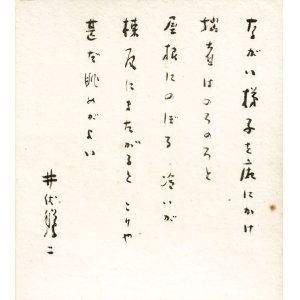 ながい梯子を廂にかけ
拙者はのろのろと
屋根にのぼる 冷いが
棟瓦にまたがると こりや
甚だ眺めがよい
井伏鱒二